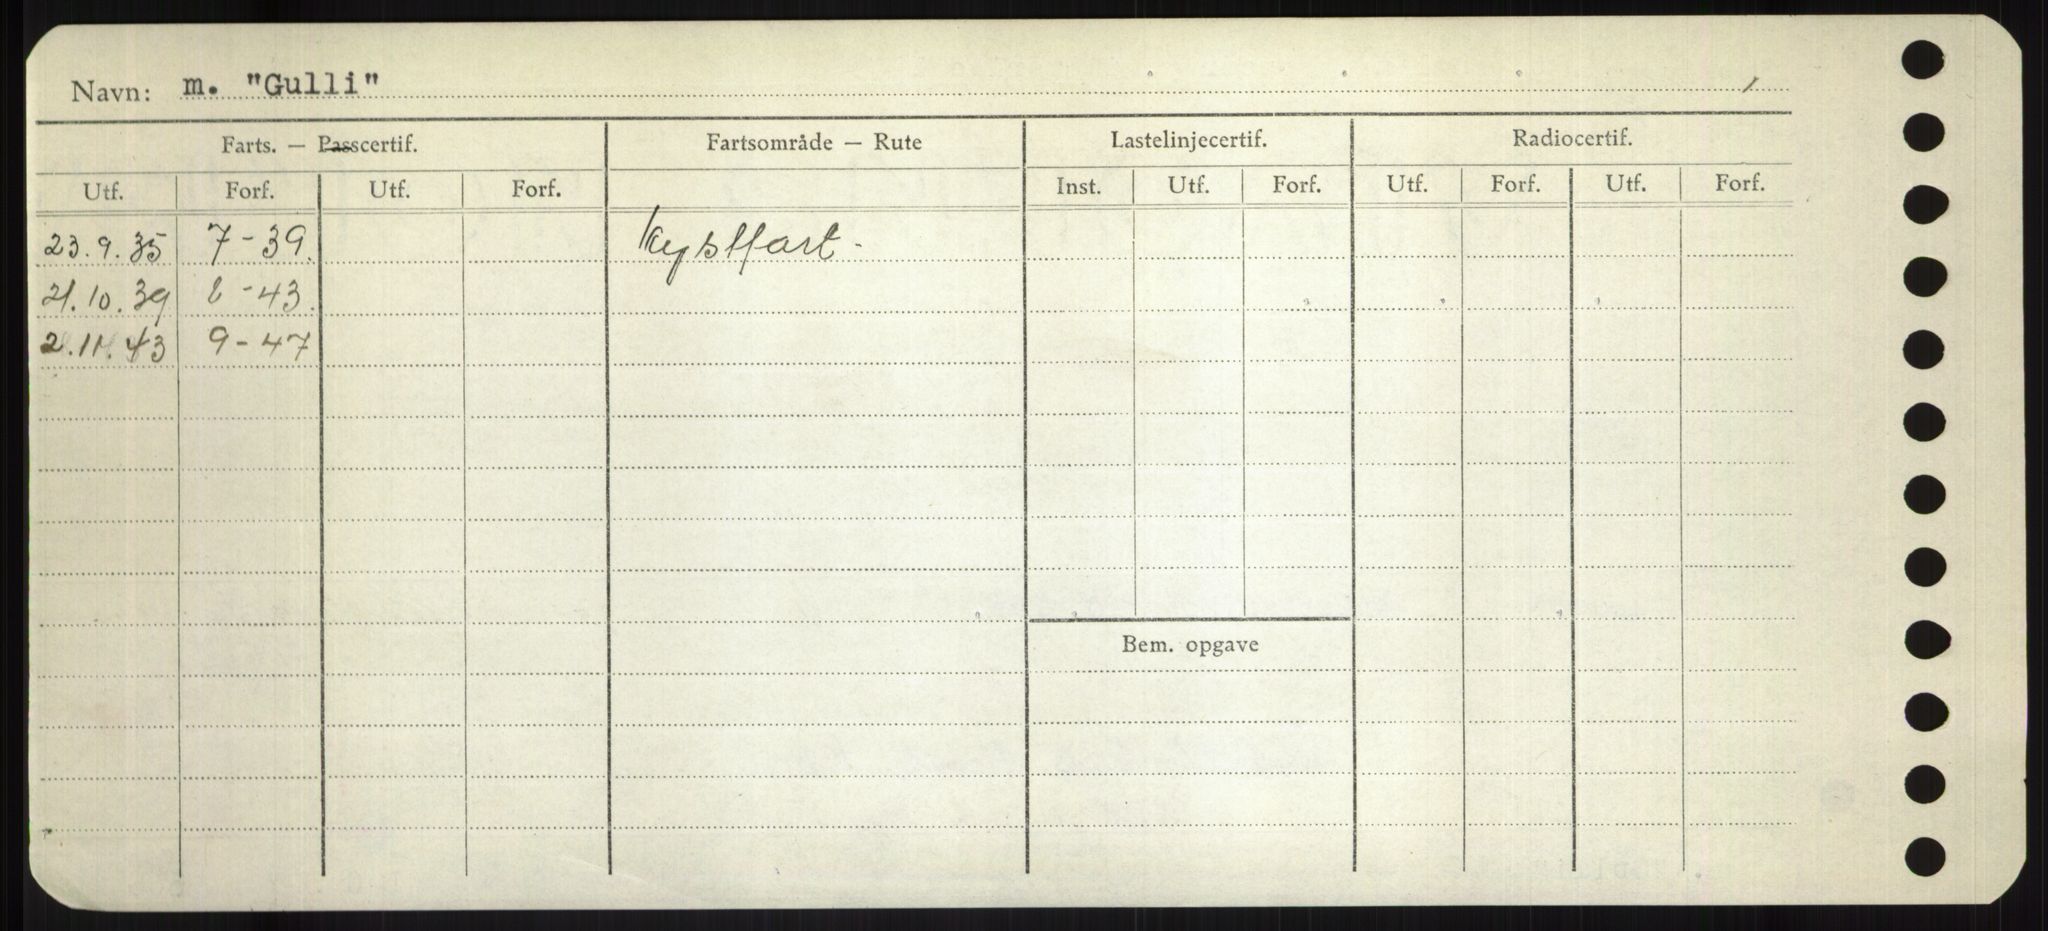 Navn: m. "Gulli"
Farts. — Passcertif. Fartsområde — Rute Lastelinjecertif. Radiocertif.
Utf. Forf. Utf. Forf. Inst. Utf. Forf. Utf. Forf. Utf. Forf.
23.9.35 7-39. Kystfart-
21.10.39 8-43.
43 9-47
Bem. opgave